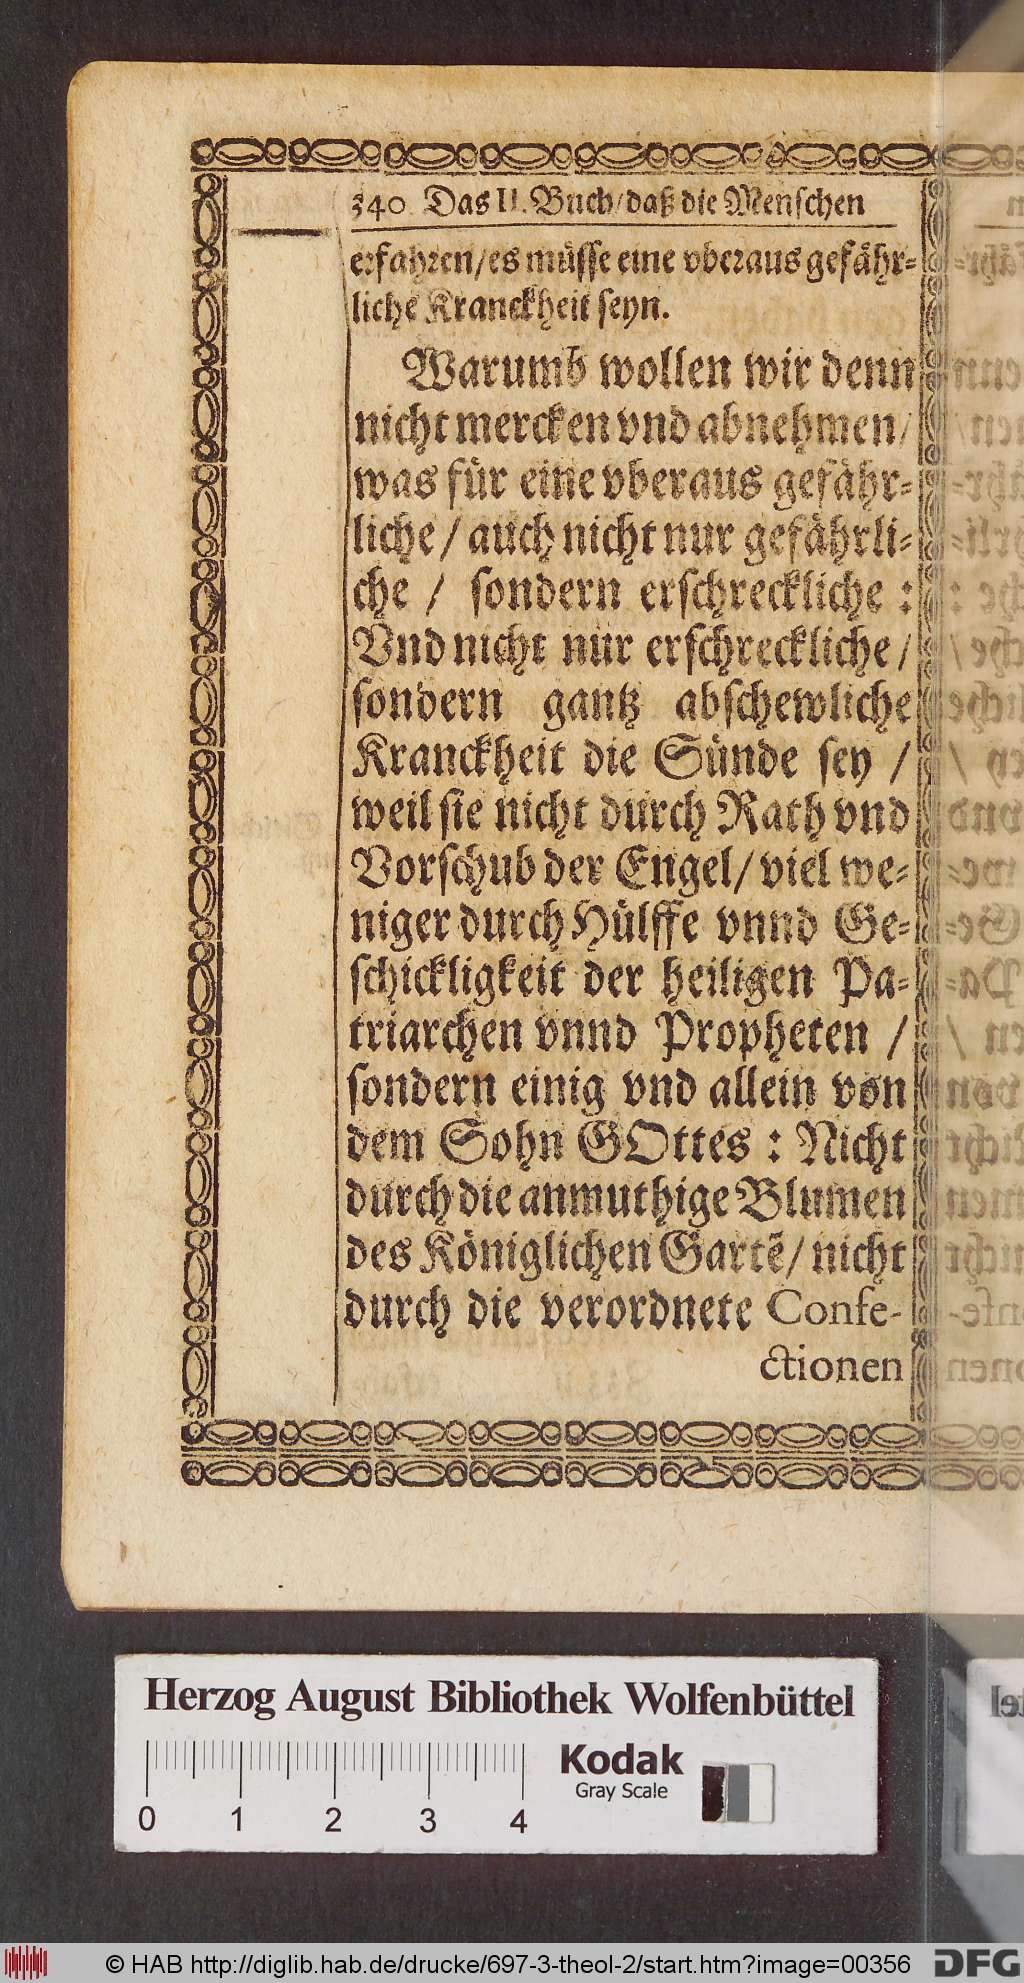 340 Das II. Buch/daß die Menschen
erfahren/es müsse eine vberaus gefähr=
liche Kranckheit seyn.
Warumb wollen wir denn
nicht mercken vnd abnehmen/
was für eine vberaus gefähr=
liche/ auch nicht nur gefährli=
che / sondern erschreckliche :
Vnd nicht nur erschreckliche/
sondern gantz abschewliche
Kranckheit die Sünde sey /
weil sie nicht durch Rath vnd
Vorschub der Engel/ viel we=
niger durch Hülffe vnnd Ge=
schickligkeit der heiligen Pa=
triarchen vnnd Propheten /
sondern einig vnd allein von
dem Sohn GOttes : Nicht
durch die anmuthige Blumen
des Königlichen Gartẽ/ nicht
durch die verordnete Confe-
ctionen
Herzog August Bibliothek Wolfenbüttel
Kodak
Gray Scale
0 1 2 3 4
© HAB http://diglib.hab.de/drucke/697-3-theol-2/start.htm?image=00356
DFG